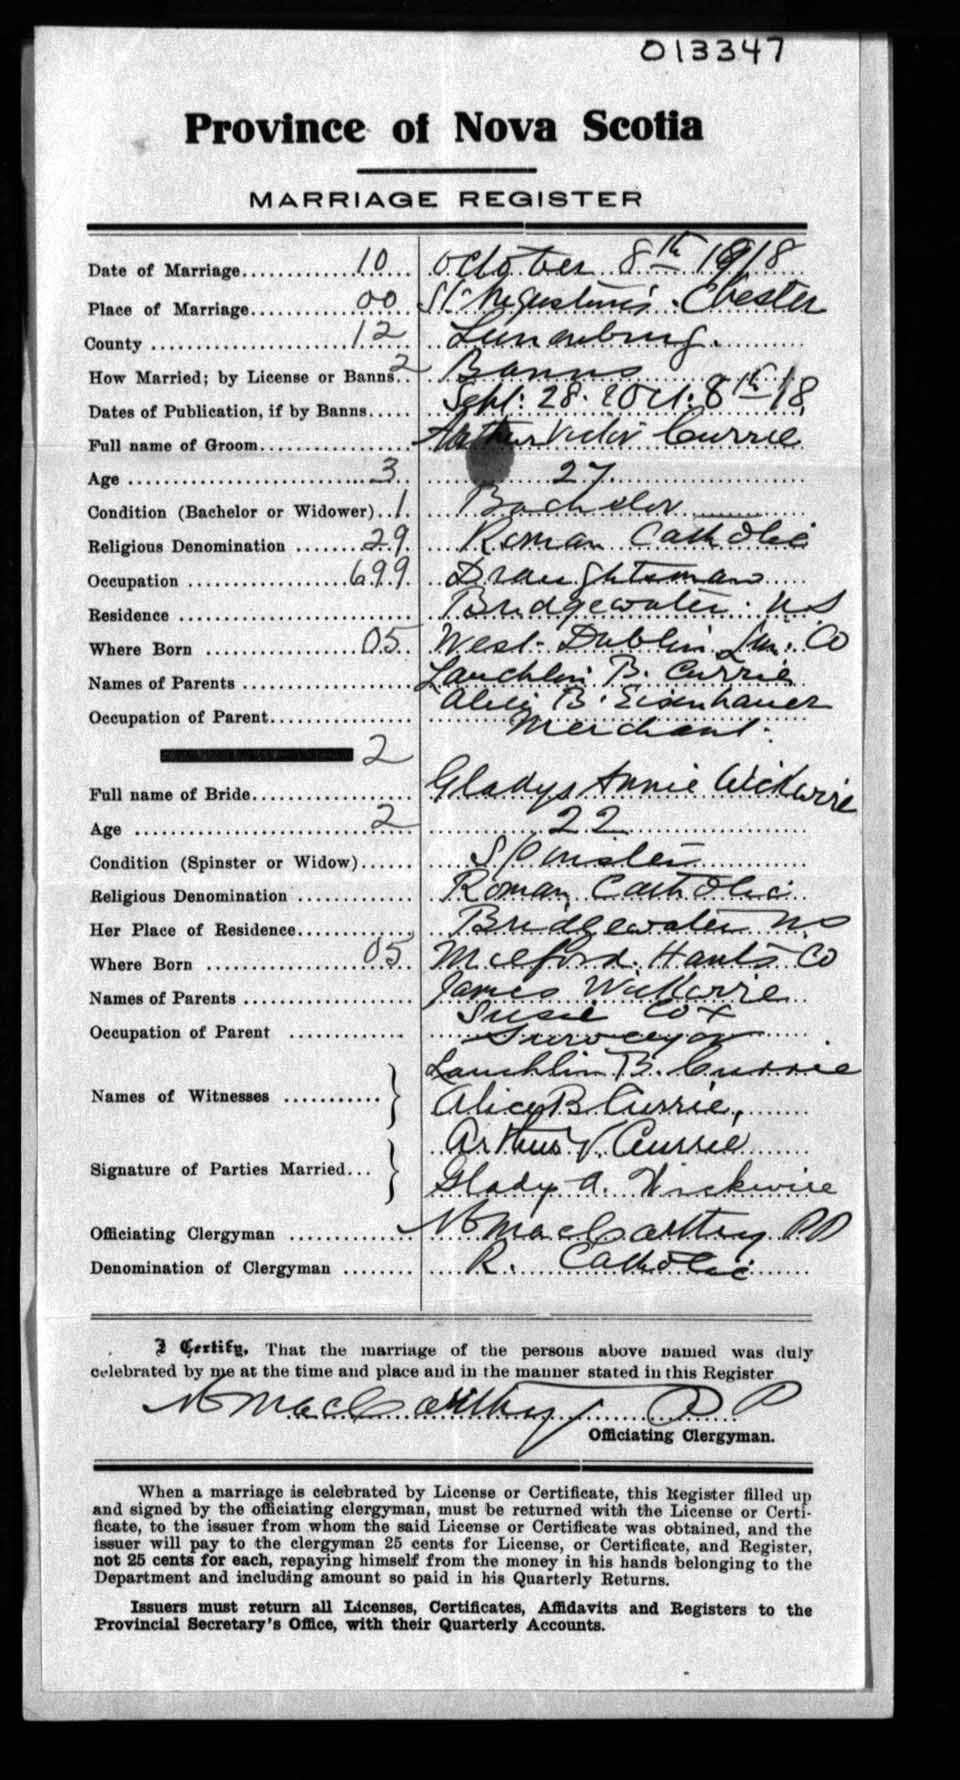 013347
Province of Nova Scotia
MARRIAGE REGISTER
Date of Marriage 10 October 8th 1918
Place of Marriage 00 St. Augustine's. Chester
County 12 Lunenburg.
How Married; by License or Banns 2 Banns
Dates of Publication, if by Banns Sept: 28. & Oct. 6th 18
Full name of Groom Arthur Victor Currie
Age 3 27
Condition (Bachelor or Widower) 1 Bachelor
Religious Denomination 29 Roman Catholic
Occupation 699 Draughtsman
Residence Bridgewater. N S
Where Born 05 West. Dublin Lun. Co
Names of Parents Lauchlin B. Currie
Alice B. Eisenhauer
Occupation of Parent Merchant.
2
Full name of Bride Gladys Annie Wickwire
Age 2 22
Condition (Spinster or Widow) Spinster
Religious Denomination Roman Catholic
Her Place of Residence Bridgewater N S
Where Born 05 Milford. Hants Co
Names of Parents James Wickwire
Susie Cox
Occupation of Parent Surveyor
Names of Witnesses Lauchlin B. Currie
Alice B Currie,
Signature of Parties Married Arthur V. Currie
Gladys A. Wickwire
Officiating Clergyman MacCarthy PP
Denomination of Clergyman R. Catholic
I Certify, That the marriage of the persons above named was duly
celebrated by me at the time and place and in the manner stated in this Register
MacCarthy P P
Officiating Clergyman.
When a marriage is celebrated by License or Certificate, this Register filled up
and signed by the officiating clergyman, must be returned with the License or Certi-
ficate, to the issuer from whom the said License or Certificate was obtained, and the
issuer will pay to the clergyman 25 cents for License, or Certificate, and Register,
not 25 cents for each, repaying himself from the money in his hands belonging to the
Department and including amount so paid in his Quarterly Returns.
Issuers must return all Licenses, Certificates, Affidavits and Registers to the
Provincial Secretary's Office, with their Quarterly Accounts.